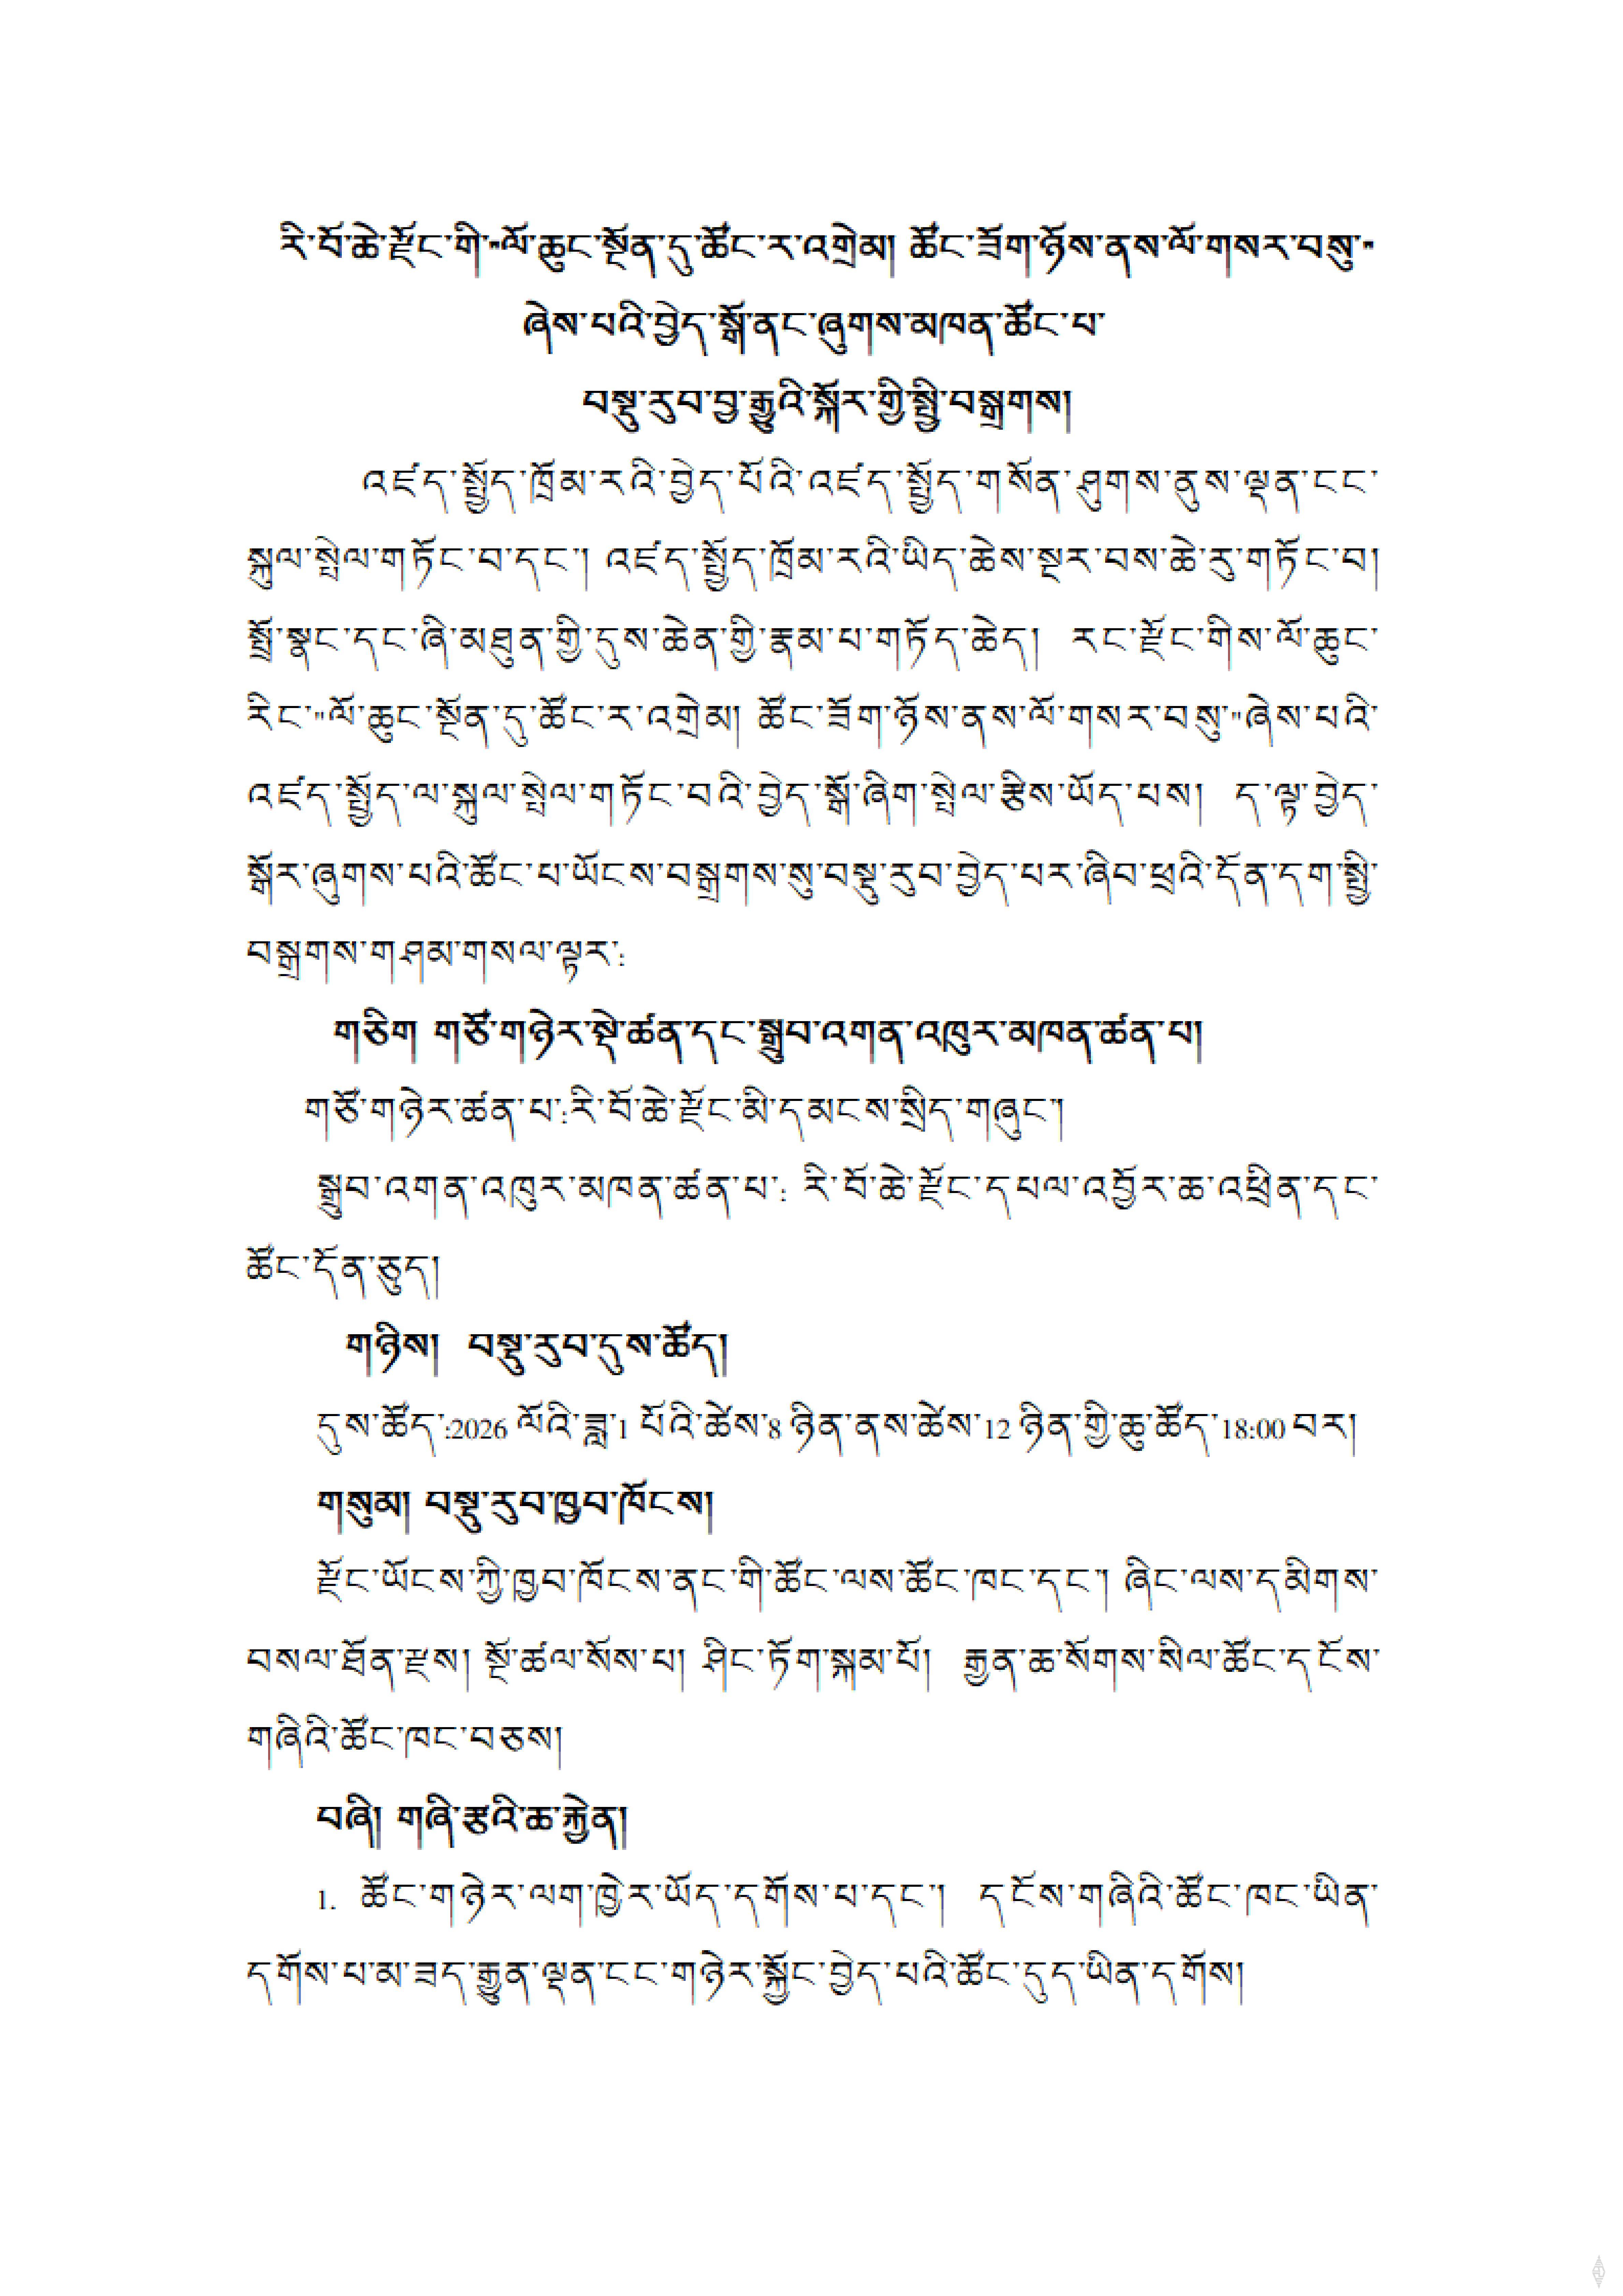 རི་བོ་ཆེ་རྫོང་གི་"ལོ་ཆུང་སྔོན་དུ་ཚོང་ར་འགྲེམ། ཚོང་ཟོག་ཉོས་ནས་ལོ་གསར་བསུ་"
ཞེས་པའི་བྱེད་སྒོ་ནང་ཞུགས་མཁན་ཚོང་པ་
བསྡུ་རུབ་བྱ་རྒྱུའི་སྐོར་གྱི་སྤྱི་བསྒྲགས།
འཛད་སྤྱོད་ཁྲོམ་རའི་བྱེད་པོའི་འཛད་སྤྱོད་གསོན་ཤུགས་ནུས་ལྡན་ངང་
སྐུལ་སློལ་གཏོང་བ་དང་། འཛད་སྤྱོད་ཁྲོམ་རའི་ཡིད་ཆེས་སྔར་བས་ཆེ་རུ་གཏོང་བ།
སྤྲོ་སྣང་དང་ཞི་མཐུན་གྱི་དུས་ཆེན་གྱི་རྣམ་པ་གཏོད་ཆེད། རང་རྫོང་གིས་ལོ་ཆུང་
རིང་"ལོ་ཆུང་སྔོན་དུ་ཚོང་ར་འགྲེམ། ཚོང་ཟོག་ཉོས་ནས་ལོ་གསར་བསུ་"ཞེས་པའི་
འཛད་སྤྱོད་ལ་སྐུལ་སློལ་གཏོང་བའི་བྱེད་སྒོ་ཞིག་སྤེལ་རྩིས་ཡོད་པས། ད་ལྟ་བྱེད་
སྒོར་ཞུགས་པའི་ཚོང་པ་ཡོངས་བསྒྲགས་སུ་བསྡུ་རུབ་བྱེད་པར་ཞིབ་ཕྲའི་དོན་དག་སྤྱི་
བསྒྲགས་གཤམ་གསལ་ལྟར་:
གཅིག གཙོ་གཉེར་སྡེ་ཚན་དང་སྒྲུབ་འགན་འཁུར་མཁན་ཚན་པ།
གཙོ་གཉེར་ཚན་པ་:རི་བོ་ཆེ་རྫོང་མི་དམངས་སྲིད་གཞུང་།
སྒྲུབ་འགན་འཁུར་མཁན་ཚན་པ་: རི་བོ་ཆེ་རྫོང་དཔལ་འབྱོར་ཆ་འཕྲིན་དང་
ཚོང་དོན་ཅུད།
གཉིས། བསྡུ་རུབ་དུས་ཚོད།
དུས་ཚོད་:2026 ལོའི་ཟླ་1 པོའི་ཚེས་8 ཉིན་ནས་ཚེས་12 ཉིན་གྱི་ཆུ་ཚོད་18:00 བར།
གསུམ། བསྡུ་རུབ་ཁྱབ་ཁོངས།
རྫོང་ཡོངས་ཀྱི་ཁྱབ་ཁོངས་ནང་གི་ཚོང་ལས་ཚོང་ཁང་དང་། ཞིང་ལས་དམིགས་
བསལ་ཐོན་རྫས། སྔོ་ཚལ་སོས་པ། ཤིང་ཏོག་སྐམ་པོ། རྒྱན་ཆ་སོགས་སིལ་ཚོང་དངོས་
གཞིའི་ཚོང་ཁང་བཅས།
བཞི། གཞི་རྩའི་ཆ་རྐྱེན།
1. ཚོང་གཉེར་ལག་ཁྱེར་ཡོད་དགོས་པ་དང་། དངོས་གཞིའི་ཚོང་ཁང་ཡིན་
དགོས་པ་མ་ཟད་རྒྱུན་ལྡན་ངང་གཉེར་སྐྱོང་བྱེད་པའི་ཚོང་དུད་ཡིན་དགོས།